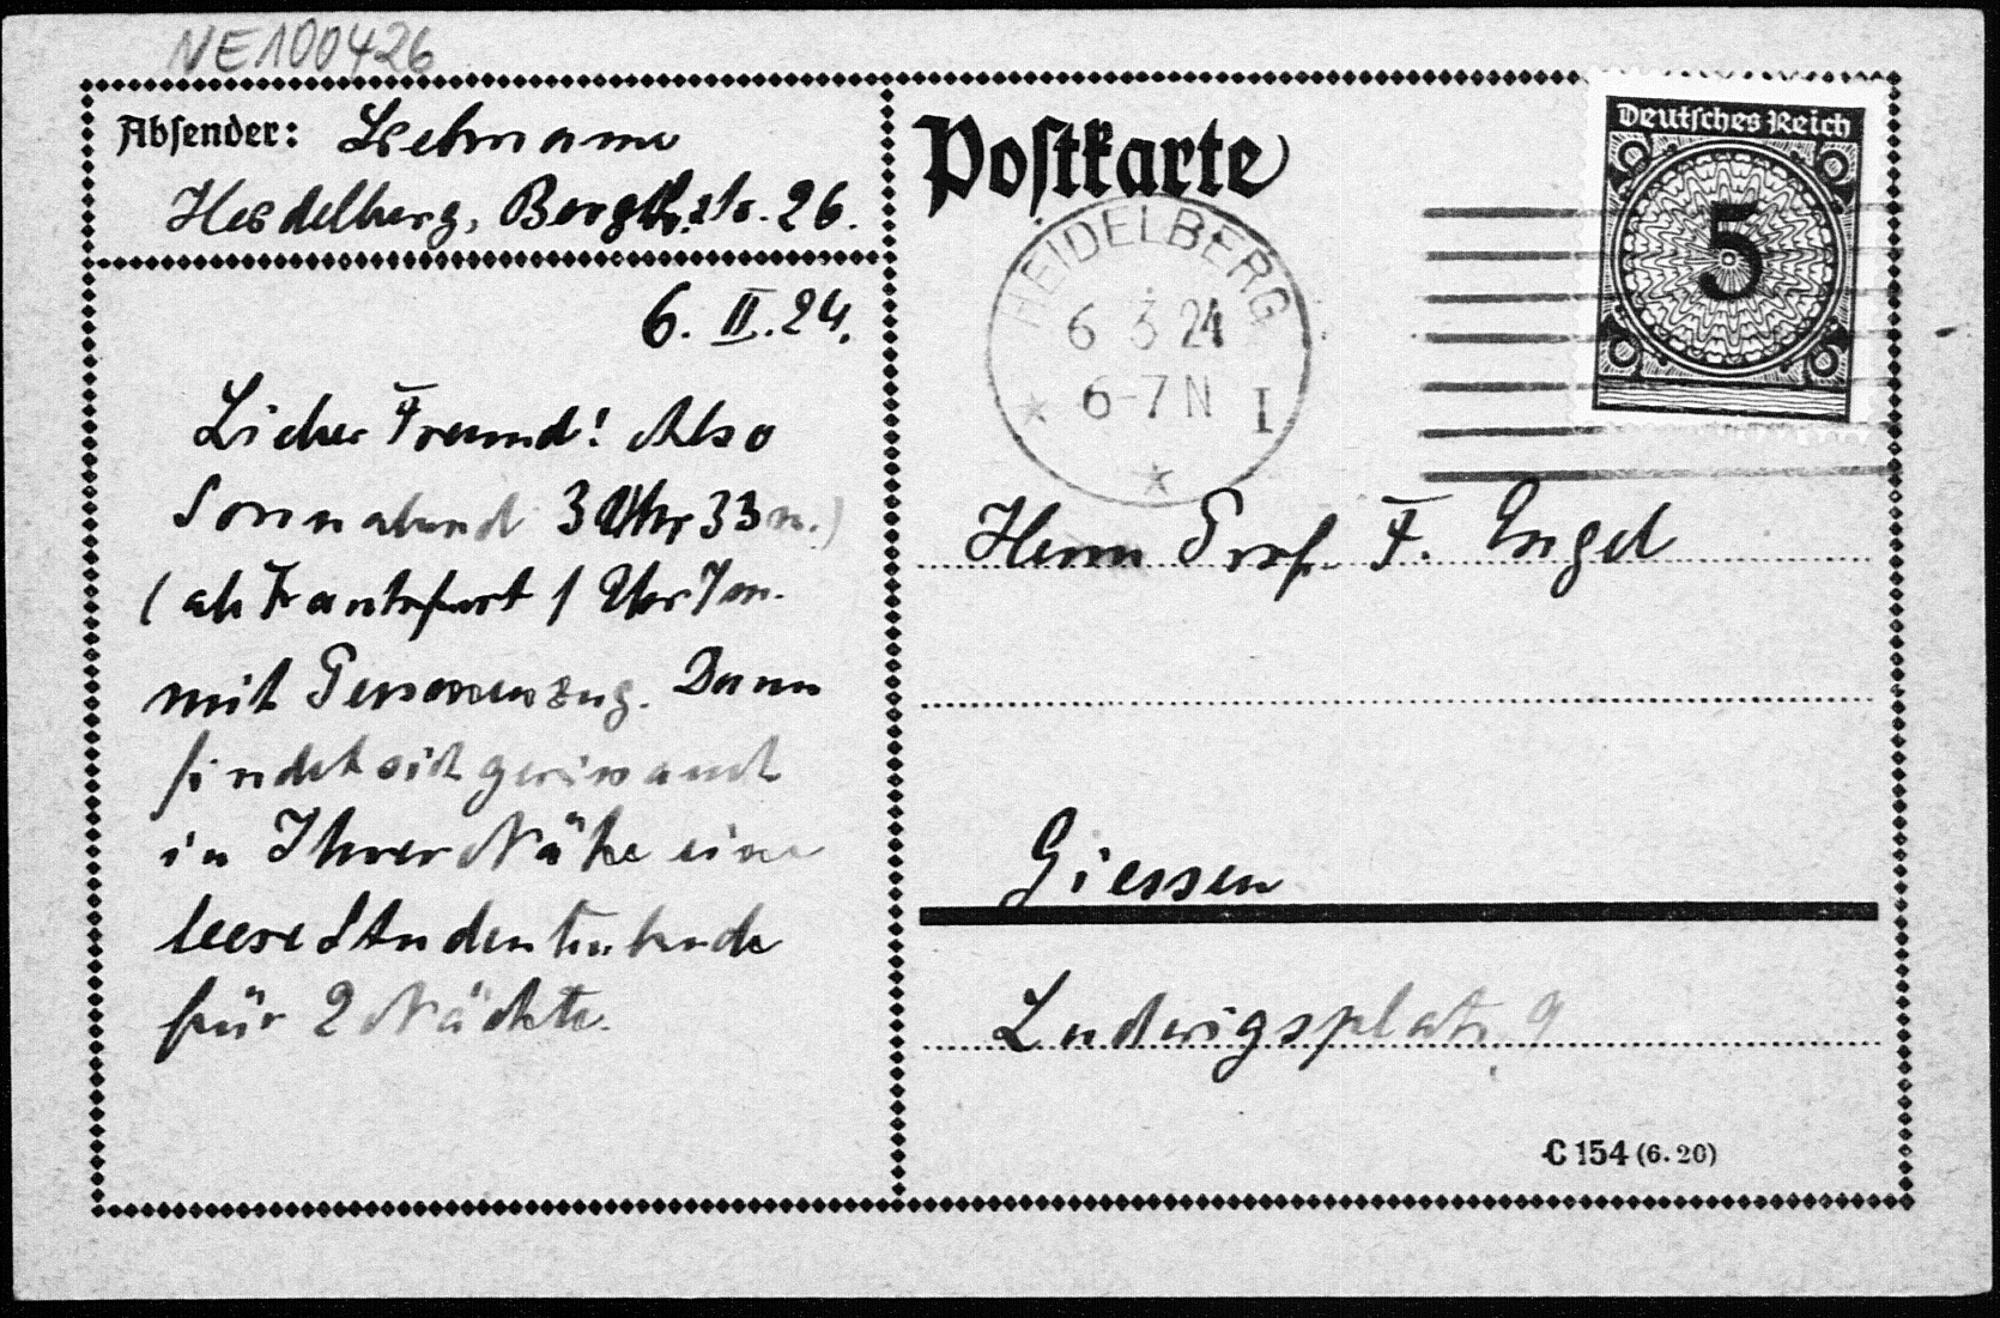 NE100426
Absender: Liebmann
Heidelberg, Bergstr. 26.
6. II. 24.
Lieber Freund! Also
Sonnabend 3 Uhr 33 m.)
(ab Frankfurt 1 Uhr 7 m.
mit Personenzug. Dann
findet sich
in Ihrer Nähe eine
leere Studentenbude
für 2 Nächte.
Postkarte
HEIDELBERG
6 3 24
6-7 N I
Deutsches Reich
5
Herrn Prof. F. Engel
Giessen
Ludwigsplatz 9
C 154 (6. 20)